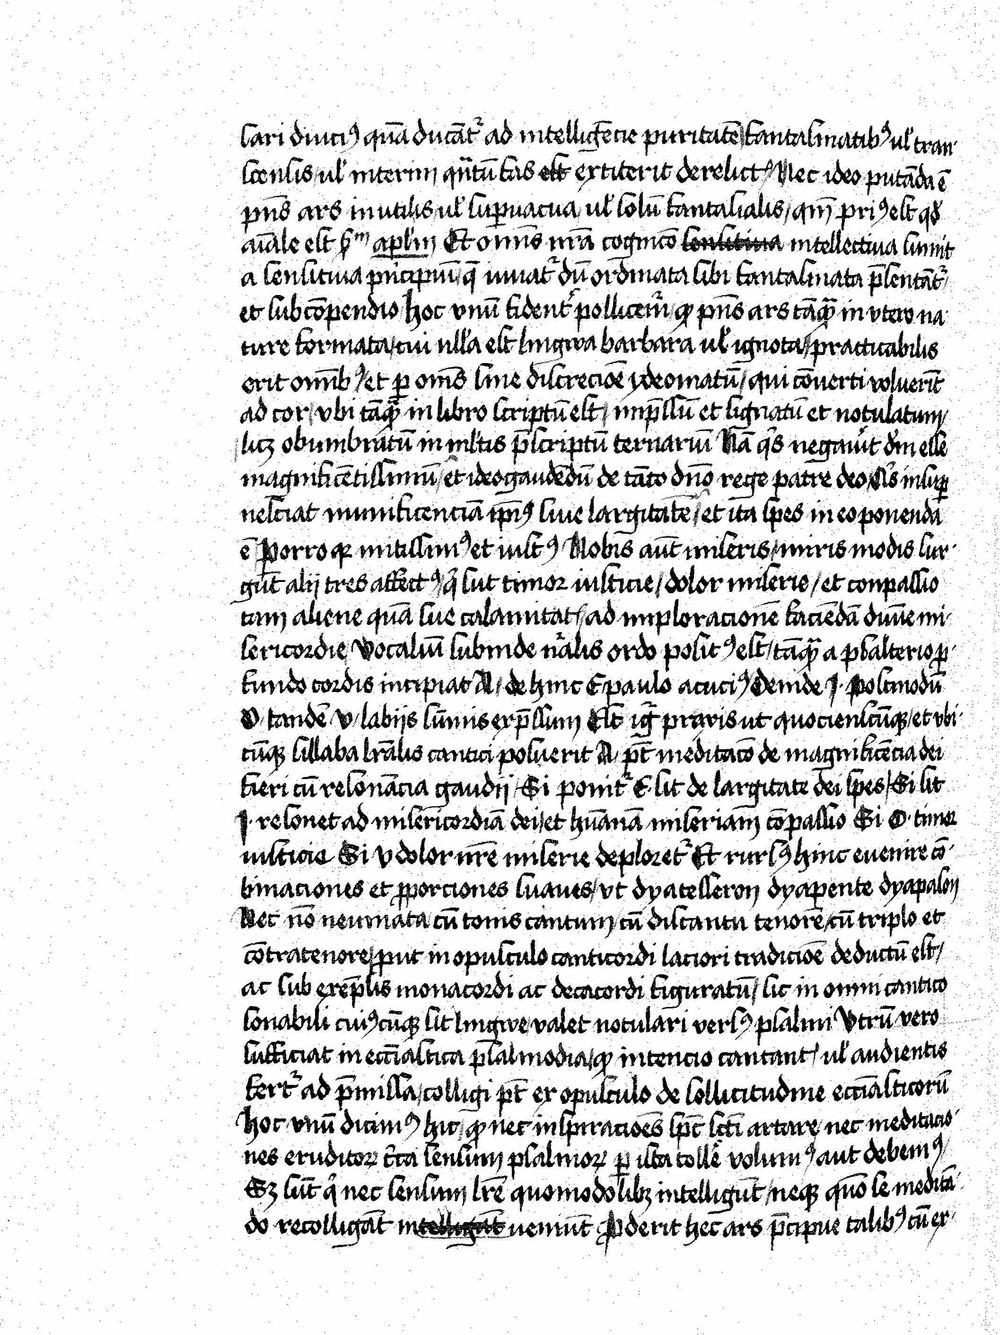 lari diuciꝰ quā ducāt᷑ ad intelligēcie puritatē fantasmatibꝰ ul' tran-
scensis / ul' interim qn̄tū fas extiterit derelictꝰ Nec ideo putāda ē
pn̄s ars inutilis / ul' supuacua / ul' solū fantasialis / qm̄ priꝰ est qd̄
aīale est apl'm Et om̄is nr̄a cognicō sensitiua intellectiua sumit
a sensitiua pn̄cipiū / q̄ iuuat᷑ dū ordinata sibi fantasmata p̄sentāt᷑ /
et sub cōpendio Hoc vnū fident᷑ pollicem᷑ / qꝫ pn̄s ars tāqꝫ in vtero na
ture formata / cui nll'a est lingwa barbara ul' ignota / practicabilis
erit om̄ibꝰ / et ꝑ om̄s sine discrecioē ydeomatū / qui cōuerti voluerīt
ad cor / vbi tāqꝫ in libro scriptū est / imp̄ssū et signatū et notulatum /
licꝫ obumbratū in ml'tis p̄scriptū ternariū Nā qͥs negauīt dm̄ esse
magnificētissimū / et ideo gaudēdū de tāto dn̄o rege patre deo / Qͥs insuꝑ
nesciat munificenciā ip̄iꝰ siue largitatē / et ita spes in eo ponenda
ē Porro qꝫ mitissimꝰ et iustꝰ Nobis aūt miseris / miris modis sur-
gūt alij tres affectꝰ / qͥ sūt timor iusticie / dolor miserie / et conpassio
tam aliene quā sue calamitatꝭ / ad imploracionē faciendā diuine mi-
sericordie Vocaliū subinde nr̄alis ordo positꝰ est / tāqꝫ a psalterio ꝓ-
fundo cordis incipiat A / dehinc E paulo acuciꝰ Deinde I Postmodū
O tandē V labijs sūmis exp̄ssum Est igr̄ praxis ut quocienscūqꝫ / et vbi-
cūqꝫ sillaba lr̄alis cantici posuerit A pt̄ meditacō de magnificēcia dei
fieri cū resonācia gaudij / Si ponit᷑ E sit de largitate dei spes / Si sit
I resonet ad misericordiā dei / et hūanā miseriam cōpassio Si O timor
iusticie Si V dolor nr̄e miserie deploret᷑ Et rursꝰ hinc euenire cō-
binaciones et ꝓporciones suaues / vt dyatesseron dyapente dyapason
Nec nō neumata cū tonis cantum cū discantu tenorē / cū triplo et
cōtratenore / ꝓut in opusculo canticordi laciori tradicioē deductū est /
ac sub exēplis monacordi ac decacordi figuratū / sic in omni cantico
sonabili cuiꝰcūqꝫ sit lingwe valet notulari versꝰ psalmi Vtrū vero
sufficiat in ecc̄iastica p̄salmodia / qꝫ intencio cantant᷑ / ul' audientis
fert᷑ ad p̄missa / colligi pt̄ ex opusculo de sollicitudine ecc̄iasticorū
Hoc vnū dicimꝰ hic / qꝫ nec inspiracioēs spc̄ sc̄ti artare / nec meditacio-
nes eruditoꝝ c̄ca sensum psalmoꝝ ꝑ ista tollē volumꝰ aut debemꝰ /
Sꝫ sūt qͥ nec sensum lr̄e quomodolibꝫ intelligūt / neqꝫ quo se meditā-
do recolligāt intelligāt ueniūt Proderit hec ars p̄cipue talibꝰ cū ex-